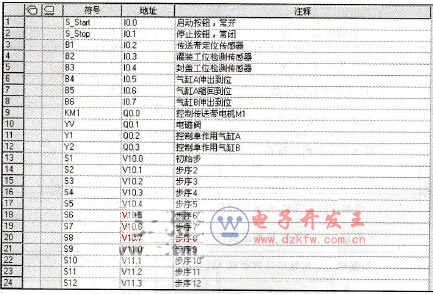 符号 地址 注释
1 S_Start I0.0 启动按钮，常开
2 S_Stop I0.1 停止按钮，常闭
3 B1 I0.2 传送带定位传感器
4 B2 I0.3 灌装工位检测传感器
5 B3 I0.4 封盖工位检测传感器
6 B4 I0.5 气缸A伸出到位
7 B5 I0.6 气缸A缩回到位
8 B6 I0.7 气缸B伸出到位
9 KM1 Q0.0 控制传送带电机M1
10 YV Q0.1 电磁阀
11 Y1 Q0.2 控制单作用气缸A
12 Y2 Q0.3 控制单作用气缸B
13 S1 V10.0 初始步
14 S2 V10.1 步序2
15 S3 V10.2 步序3
16 S4 V10.3 步序4
17 S5 V10.4 步序5
18 S6 V10.5 步序6
19 S7 V10.6 步序7
20 S8 步序8
21 S9 步序9
22 S10 V11.1 步序10
23 S11 V11.2 步序11
24 S12 V11.3 步序12
电子开发王
www.dzkfw.com